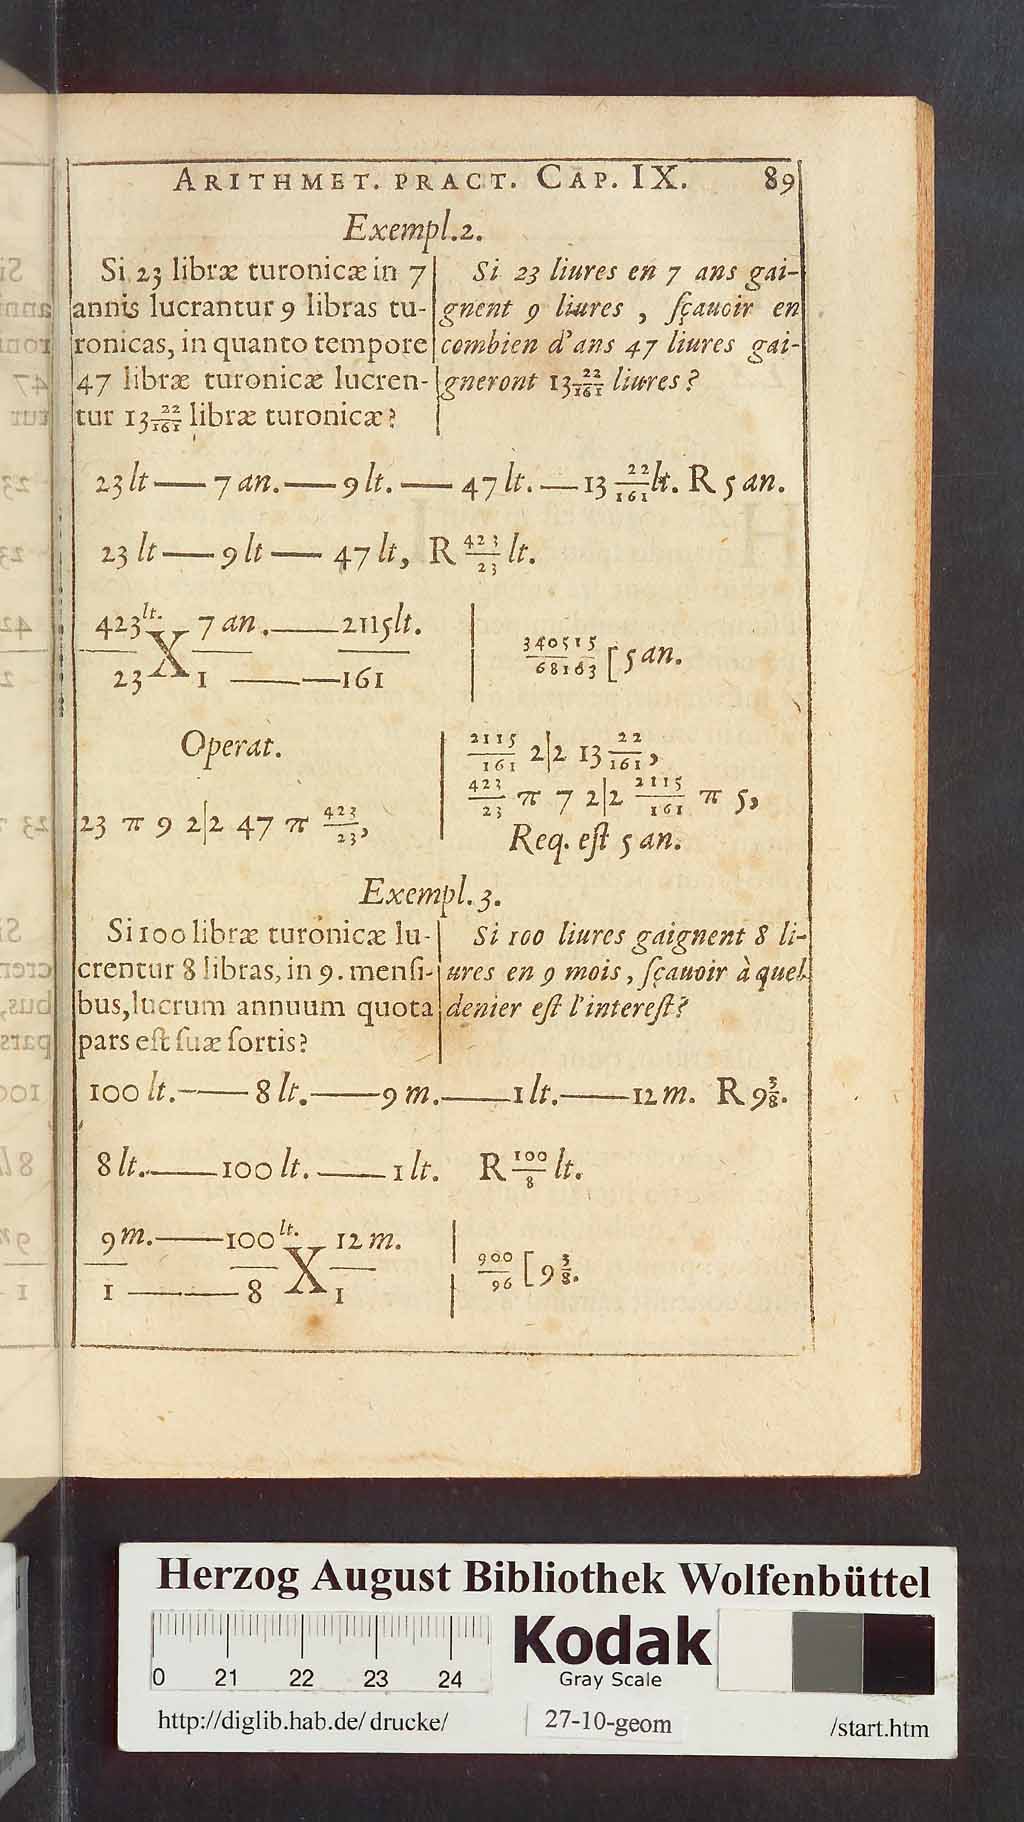 ARITHMET. PRACT. CAP. IX. 89
Exempl.2.
Si 23 libræ turonicæ in 7
annis lucrantur 9 libras tu-
ronicas, in quanto tempore
47 libræ turonicæ lucren-
tur 13 22/161 libræ turonicæ?
Si 23 liures en 7 ans gai-
gnent 9 liures , sçauoir en
combien d'ans 47 liures gai-
gneront 13 22/161 liures?
23 lt — 7 an. — 9 lt. — 47 lt. — 13 22/161 lt. R 5 an.
23 lt — 9 lt — 47 lt, R 423/23 lt.
423 lt. 7 an. — 2115 lt.
X
23 1 — 161
340515/68163 [ 5 an.
Operat.
23 π 9 2|2 47 π 423/23,
2115/161 2|2 13 22/161,
423/23 π 7 2|2 2115/161 π 5,
Req. est 5 an.
Exempl. 3.
Si 100 libræ turonicæ lu-
crentur 8 libras, in 9. mensi-
bus, lucrum annuum quota
pars est suæ sortis?
Si 100 liures gaignent 8 li-
ures en 9 mois, sçauoir à quel
denier est l'interest?
100 lt. — 8 lt. — 9 m. — 1 lt. — 12 m. R 9 3/8.
8 lt. — 100 lt. — 1 lt. R 100/8 lt.
9 m. — 100 lt. 12 m.
X
1 — 8 1
900/96 [ 9 3/8.
Herzog August Bibliothek Wolfenbüttel
0 21 22 23 24
Kodak
Gray Scale
http://diglib.hab.de/drucke/ 27-10-geom /start.htm